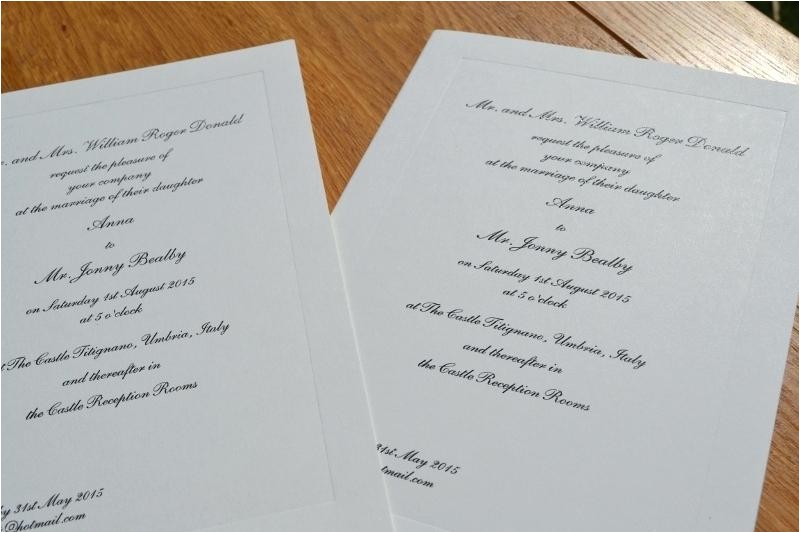 and Mrs. William Roger Donald
request the pleasure of
your company
at the marriage of their daughter
Anna
to
Mr. Jonny Bealby
on Saturday 1st August 2015
at 5 o'clock
The Castle Titignano, Umbria, Italy
and thereafter in
the Castle Reception Rooms
31st May 2015
@hotmail.com
Mr. and Mrs. William Roger Donald
request the pleasure of
your company
at the marriage of their daughter
Anna
to
Mr. Jonny Bealby
on Saturday 1st August 2015
at 5 o'clock
at The Castle Titignano, Umbria, Italy
and thereafter in
the Castle Reception Rooms
31st May 2015
tmail.com